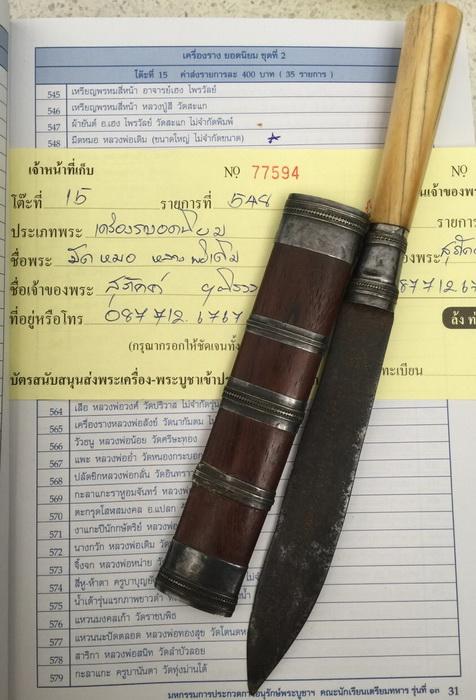 เครื่องราง ยอดนิยม ชุดที่ 2
โต๊ะที่ 15 ค่าส่งรายการละ 400 บาท ( 35 รายการ )
545 เหรียญพรหมสี่หน้า อาจารย์เฮง ไพรวัลย์
546 เหรียญพรหมสี่หน้า หลวงปู่สี วัดสะแก
547 ผ้ายันต์ อ.เฮง ไพรวัลย์ วัดสะแก ไม่จำกัดพิมพ์
548 มีดหมอ หลวงพ่อเดิม (ขนาดใหญ่ ไม่จำกัดขนาด)
เจ้าหน้าที่เก็บ
Nº 77594
Nº
โต๊ะที่ 15 รายการที่ 548
นเจ้าของพระ
ประเภทพระ เครื่องรางยอดนิยม
รายการ
ชื่อพระ มีดหมอ หลวงพ่อเดิม
องพระ
ชื่อเจ้าของพระ
ที่อยู่หรือโทร 087 712 6767
87 712 67
(กรุณากรอกให้ชัดเจนทั้ง
ล้ง ท่
บัตรสนับสนุนส่งพระเครื่อง-พระบูชาเข้าประ
ทะเบียน
564 เสือ หลวงพ่อวงศ์ วัดปริวาส ไม่จำกัดรุ่น
565 เครื่องรางหลวงพ่อสังข์ วัดนากันตม
566 วัวธนู หลวงพ่อน้อย วัดศรีษะทอง
567 แพะ หลวงพ่ออ่ำ วัดหนองกระบอก
568 ปลัดขิกหลวงพ่อกลั่น วัดอินทรา
569 กะลาแกะราหูอมจันทร์ หลวงพ่อ
570 ตะกรุดโสฬสมงคล อ.แปลก
571 งาแกะปีนักกษัตริย์ หลวงพ่อ
572 นางกวัก หลวงพ่อเดิม วัด
573 จิ้งจก หลวงพ่อหน่าย วัด
574 สีหู-ห้าตา ครูบาบุญยัง
575 น้ำเต้ารุ่นแรกภาพยาวดำ
576 แหวนมงคลเก้า วัดราชบพิธ
577 แหวนนะปัดตลอด หลวงพ่อทองสุข วัดโตนดห
578 สาริกา หลวงพ่อสนิท วัดลำบัวลอย
579 กะลาแกะ ครูบานันตา วัดทุ่งม่านใต้
มหกรรมการประกวดการอนุรักษ์พระบูชาฯ คณะนักเรียนเตรียมทหาร รุ่นที่ ๑๓ 31